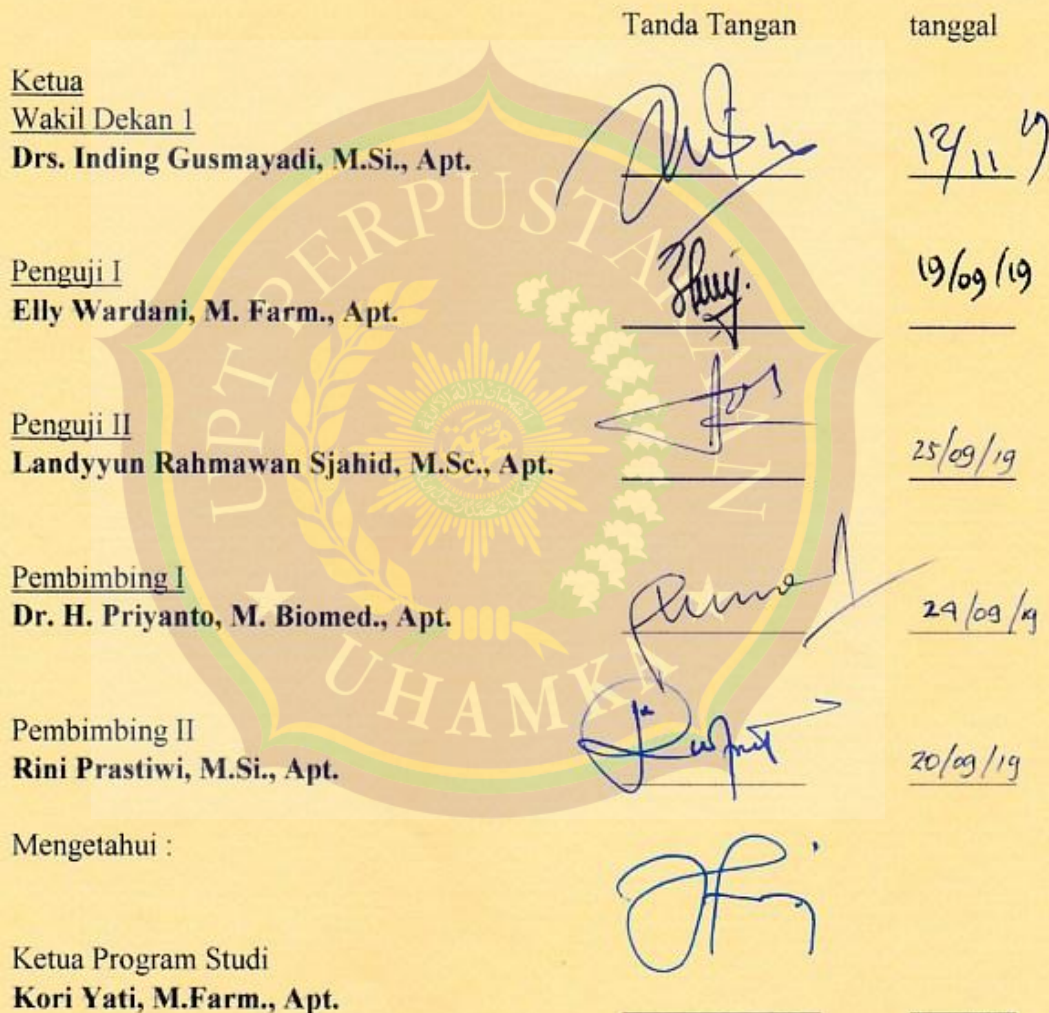 Tanda Tangan tanggal
Ketua
Wakil Dekan 1
Drs. Inding Gusmayadi, M.Si., Apt.
12/11 19
Penguji I
Elly Wardani, M. Farm., Apt.
19/09/19
Penguji II
Landyyun Rahmawan Sjahid, M.Sc., Apt.
25/09/19
Pembimbing I
Dr. H. Priyanto, M. Biomed., Apt.
24/09/19
Pembimbing II
Rini Prastiwi, M.Si., Apt.
20/09/19
Mengetahui :
Ketua Program Studi
Kori Yati, M.Farm., Apt.
UPT PERPUSTAKAAN
UHAMKA